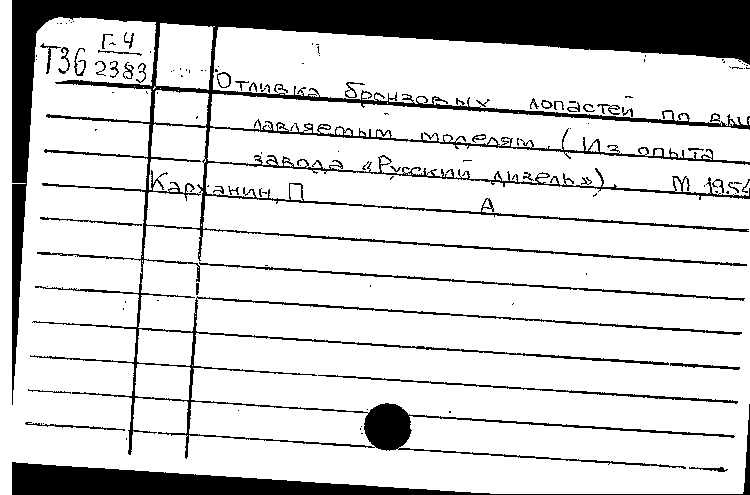 Г-4
Т36 2383
Отливка бронзовых лопастей по вып
лавляемым моделям. (Из опыта
завода «Русский дизель»). М, 1954
Карханин, П
А